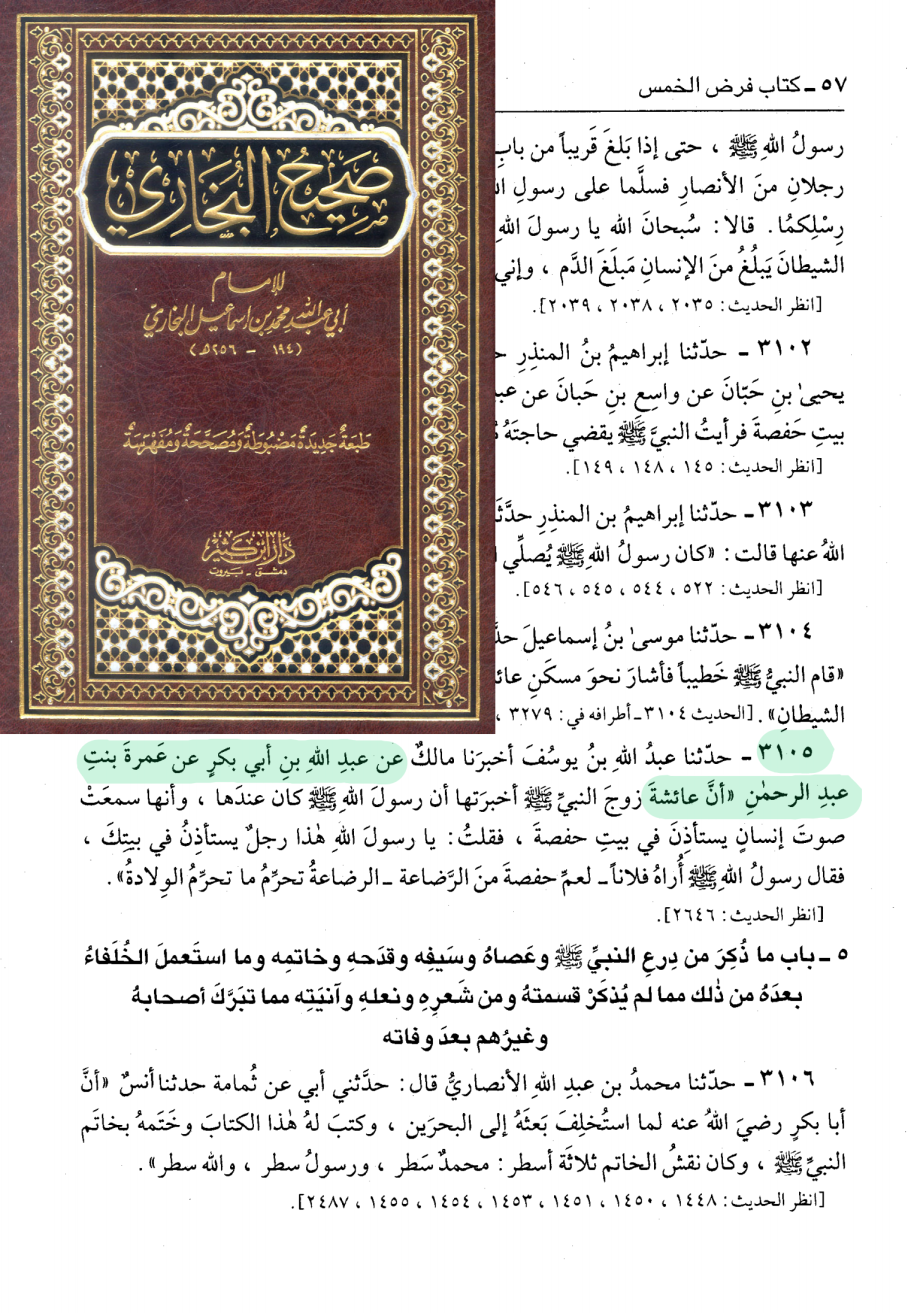 صَحِيحُ البُخَارِي
للإمام
أبي عبد الله محمد بن إسماعيل البخاريّ
(١٩٤ - ٢٥٦ھ)
طبعَةٌ جَديدَةٌ مَضبُوطةٌ وَمُصَحَّحَةٌ وَمُفَهرسَةٌ
دَار ابن كثير
دمشق - بيروت
٥٧ ـ كتاب فرض الخمس
رسولُ اللهِ ﷺ ، حتى إذا بَلغَ قَريباً من بابِ
رجلانِ منَ الأنصارِ فسلَّما على رسولِ
رِسْلِكمُا. قالا: سُبحانَ الله يا رسولَ اللهِ
الشيطانَ يَبلُغُ منَ الإنسانِ مَبلَغَ الدَّم ، وإني
[انظر الحديث: ٢٠٣٥ ، ٢٠٣٨ ، ٢٠٣٩].
٣١٠٢ ـ حدّثنا إبراهيمُ بنُ المنذِرِ
يحيىٰ بنِ حَبّانَ عن واسِعِ بنِ حَبانَ عن
بيتِ حَفصةَ فرأيتُ النبيَّ ﷺ يقضي حاجتَهُ
[انظر الحديث: ١٤٥ ، ١٤٨ ، ١٤٩].
٣١٠٣ ـ حدّثنا إبراهيمُ بن المنذِرِ
اللهُ عنها قالت: «كان رسولُ اللهِ ﷺ يُصلِّي
[انظر الحديث: ٥٢٢ ، ٥٤٤ ، ٥٤٥ ، ٥٤٦].
٣١٠٤ ـ حدّثنا موسىٰ بنُ إسماعيلَ
«قام النبيُّ ﷺ خَطيباً فأشارَ نحوَ مسكَنِ
الشيطانِ». [الحديث ٣١٠٤ ـ أطرافه في: ٣٢٧٩ ،
٣١٠٥ ـ حدّثنا عبدُ اللهِ بنُ يوسُفَ أخبرَنا مالكٌ عن عبدِ اللهِ بنِ أبي بكرٍ عن عَمرةَ بنتِ
عبدِ الرحمٰنِ «أنَّ عائشةَ زوجَ النبيِّ ﷺ أخبرَتها أن رسولَ اللهِ ﷺ كان عندَها ، وأنها سمعَتْ
صوتَ إنسانٍ يستأذِنُ في بيتِ حفصةَ ، فقلتُ: يا رسولَ اللهِ هٰذا رجلٌ يستأذِنُ في بيتِكَ ،
فقال رسولُ اللهِ ﷺ أُراهُ فلاناً ـ لعمِّ حفصةَ منَ الرَّضاعة ـ الرضاعةُ تحرِّمُ ما تحرِّمُ الوِلادةُ».
[انظر الحديث: ٢٦٤٦].
٥ ـ باب ما ذُكِرَ من دِرعِ النبيِّ ﷺ وعَصاهُ وسَيفِه وقدَحِهِ وخاتمِه وما استَعملَ الخُلَفاءُ
بعدَهُ من ذٰلك مما لم يُذكَرْ قسمتهُ ومن شَعرِهِ ونعلهِ وآنيَتِه مما تبرَّكَ أصحابهُ
وغيرُهم بعدَ وفاته
٣١٠٦ ـ حدّثنا محمدُ بن عبدِ اللهِ الأنصاريُّ قال: حدَّثني أبي عن ثُمامة حدثنا أنسٌ «أنَّ
أبا بكرٍ رضيَ اللهُ عنه لما استُخلِفَ بَعثَهُ إلى البحرَين ، وكتبَ لهُ هٰذا الكتابَ وخَتَمهُ بخاتَم
النبيِّ ﷺ ، وكان نقشُ الخاتم ثلاثَة أسطر: محمدٌ سَطر ، ورسولُ سطر ، والله سطر».
[انظر الحديث: ١٤٤٨ ، ١٤٥٠ ، ١٤٥١ ، ١٤٥٣ ، ١٤٥٤ ، ١٤٥٥ ، ٢٤٨٧].